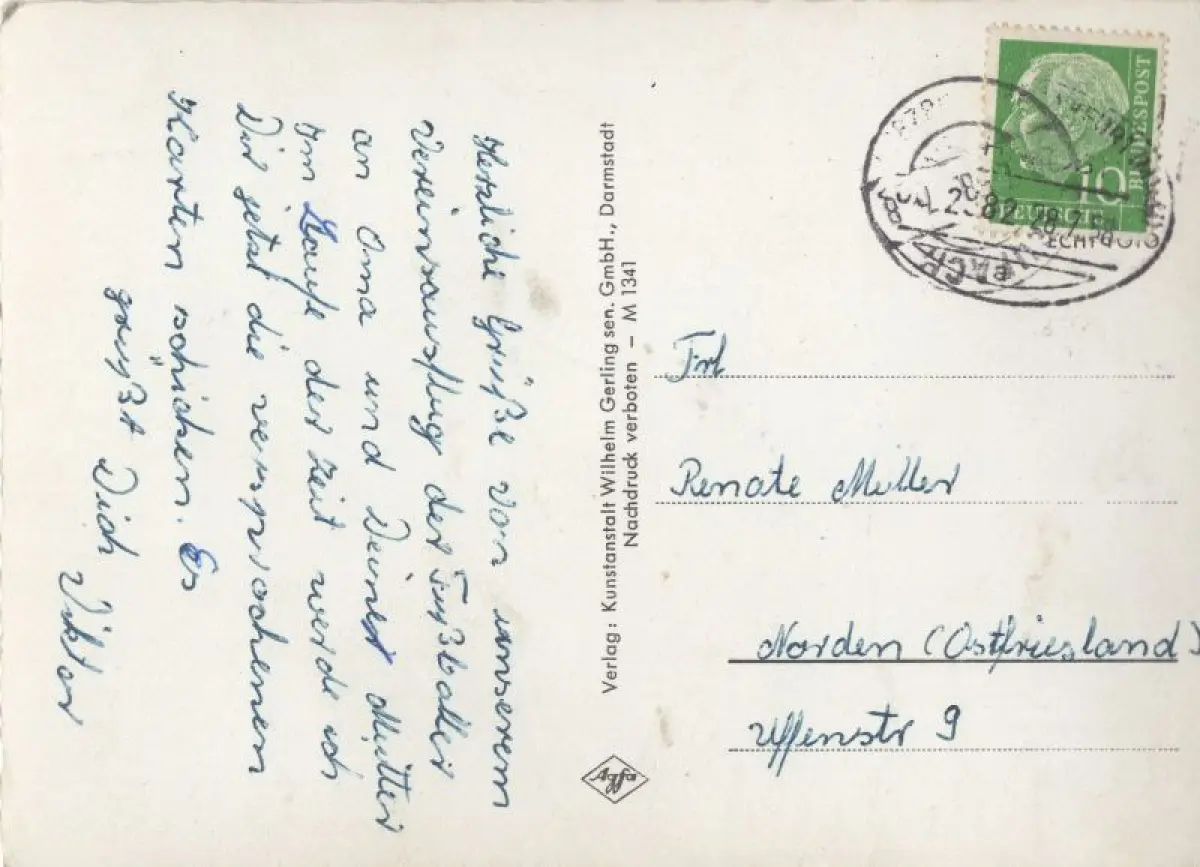 Herzliche Grüße von unserem
Vereinsausflug der Fußballer
an Oma und Deiner Mutter
Im Laufe der Zeit werde ich
Dir jetzt die versprochenen
Karten schicken. Es
grüßt Dich
Viktor
Verlag: Kunstanstalt Wilhelm Gerling sen. GmbH., Darmstadt
Nachdruck verboten – M 1341
Agfa
BUNDESPOST
10
28.7.58
Frl
Renate Müller
Norden (Ostfriesland)
Uffenstr 9